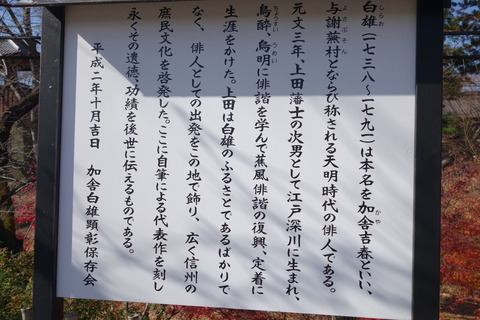 白雄(一七三八〜一七九一)は本名を加舎吉春といい、
しらお
かや
与謝蕪村とならび称される天明時代の俳人である。
よさぶそん
元文三年、上田藩士の次男として江戸深川に生まれ、
鳥酔、烏明に俳諧を学んで蕉風俳諧の復興、定着に
ちょうすい
うめい
生涯をかけた。上田は白雄のふるさとであるばかりで
なく、俳人としての出発をこの地で飾り、広く信州の
庶民文化を啓発した。ここに自筆による代表作を刻し
永くその遺徳、功績を後世に伝えるものである。
平成二年十月吉日 加舎白雄顕彰保存会